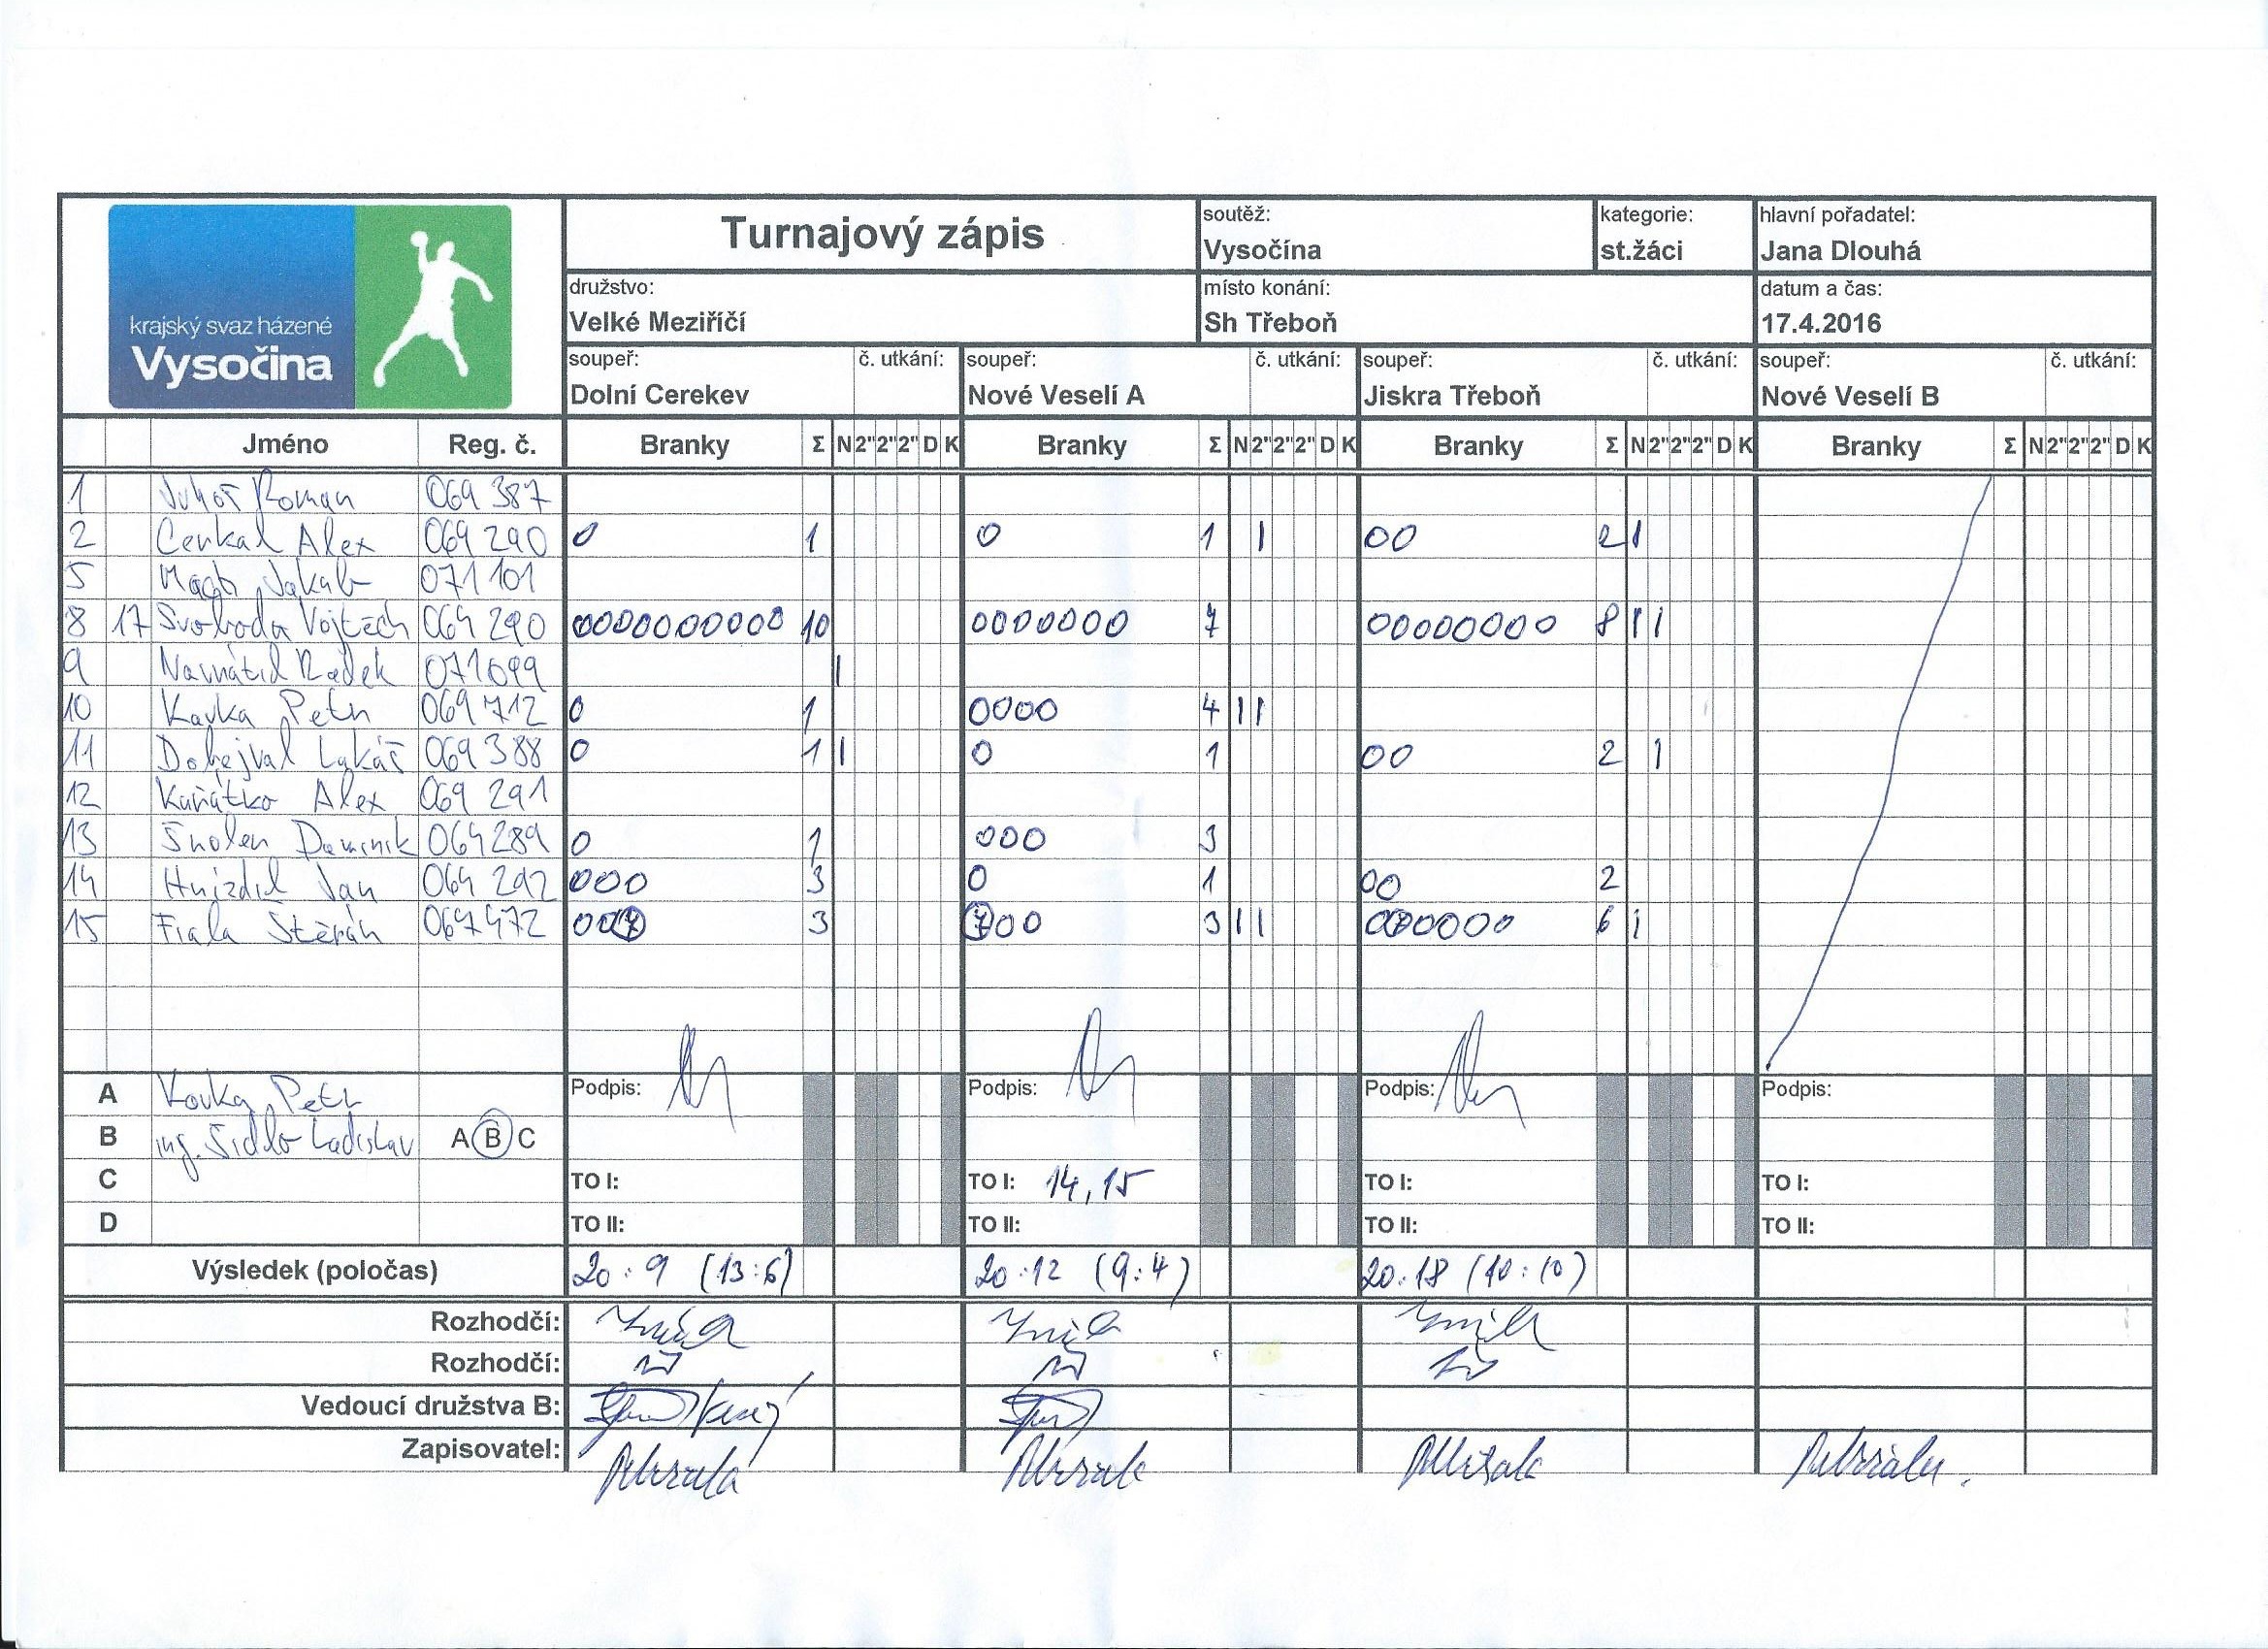 krajský svaz házené
Vysočina
Turnajový zápis
soutěž:
Vysočína
kategorie:
st.žáci
hlavní pořadatel:
Jana Dlouhá
družstvo:
Velké Meziříčí
místo konání:
Sh Třeboň
datum a čas:
17.4.2016
soupeř: č. utkání: soupeř: č. utkání: soupeř: č. utkání: soupeř: č. utkání:
Dolní Cerekev Nové Veselí A Jiskra Třeboň Nové Veselí B
Jméno Reg. č. Branky Σ N 2" 2" 2" D K Branky Σ N 2" 2" 2" D K Branky Σ N 2" 2" 2" D K Branky Σ N 2" 2" 2" D K
1 Roman 069 387
2 Alex 069 290 0 1 0 1 I 00 2 I
5 Jakub 071 101
8 17 Svoboda Vojtěch 064 290 0000000000 10 0000000 7 00000000 8 I I
9 Navrátil Radek 071099 I
10 Kavka Petr 069 712 0 1 0000 4 I I
11 Dohejval Lukáš 069 388 0 1 I 0 1 00 2 I
12 Alex 069 291
13 Dominik 064289 0 1 000 3
14 Hnízdil Jan 064 292 000 3 0 1 00 2
15 Fiala Štěpán 067472 007 3 700 3 I I 6 I
A Kavka Petr Podpis: Podpis: Podpis: Podpis:
B ing. Šidlo Ladislav A B C
C TO I: TO I: 14,15 TO I: TO I:
D TO II: TO II: TO II: TO II:
Výsledek (poločas) 20:9 (13:6) 20:12 (9:4) 20:18 (10:10)
Rozhodčí:
Rozhodčí:
Vedoucí družstva B:
Zapisovatel: